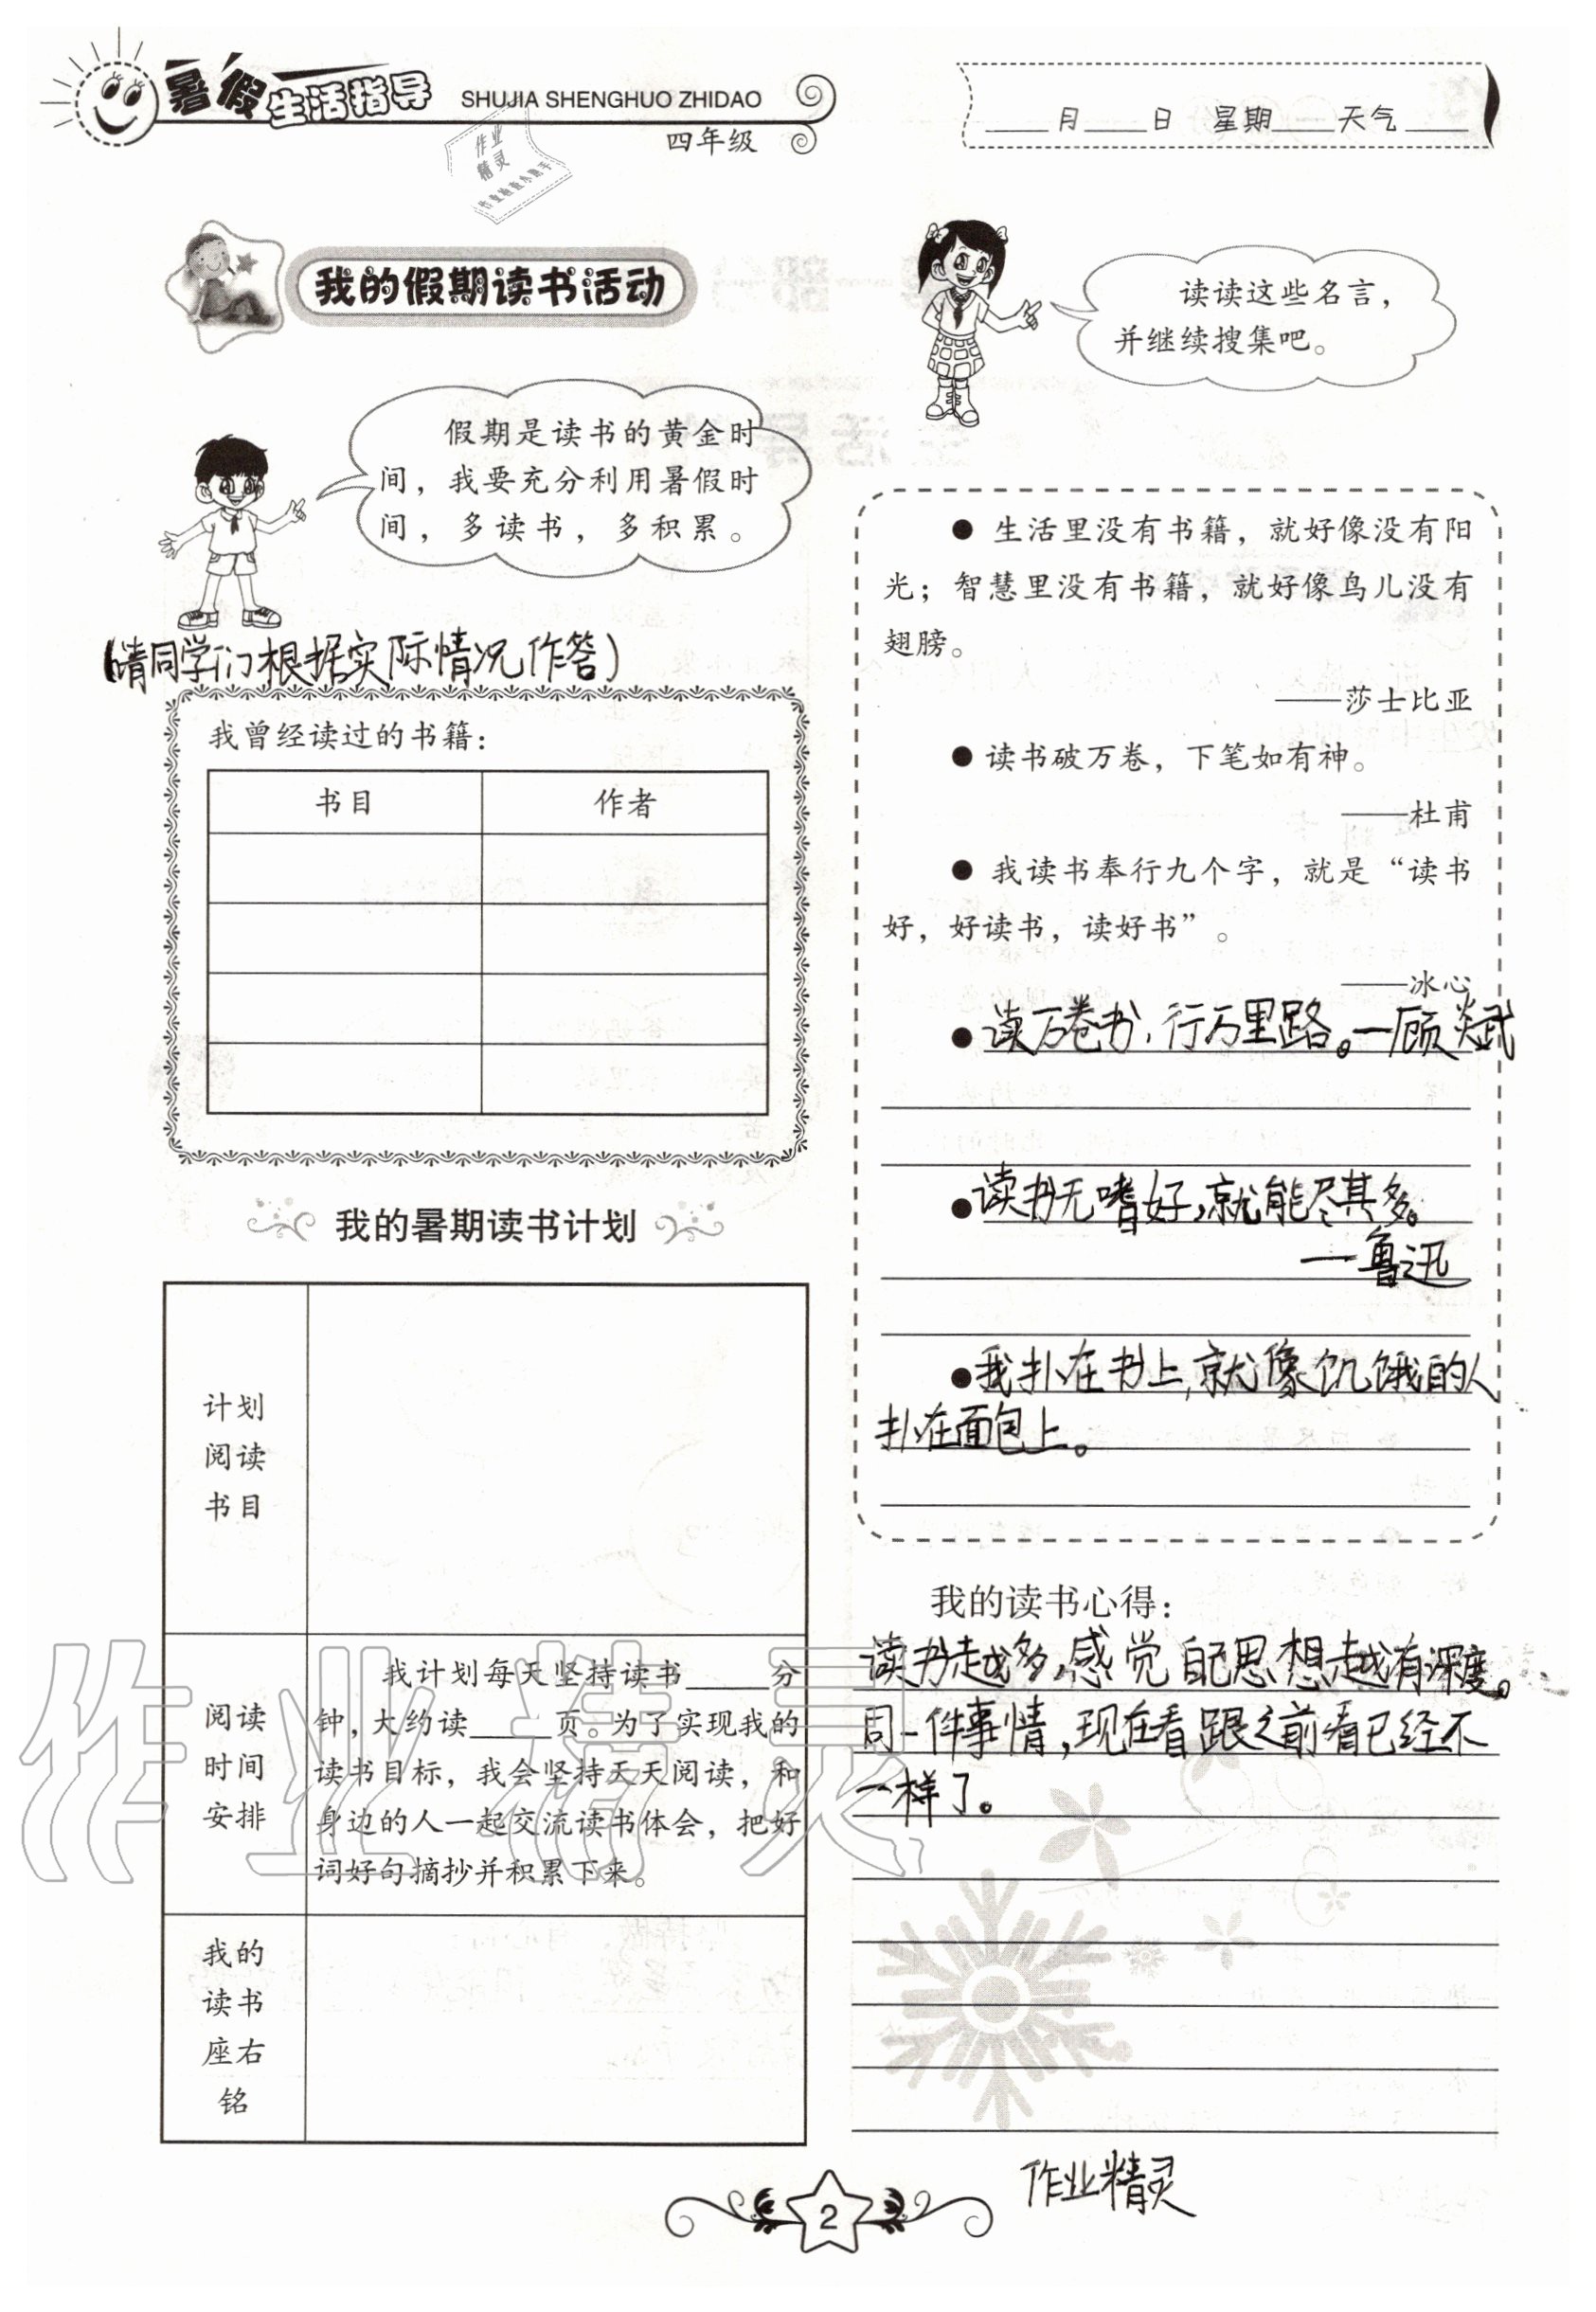 暑假生活指导
SHUJIA SHENGHUO ZHIDAO
四年级
____月____日 星期____天气____
作业
精灵
我的假期读书活动
假期是读书的黄金时
间，我要充分利用暑假时
间，多读书，多积累。
(请同学们根据实际情况作答)
我曾经读过的书籍：
书目 作者
我的暑期读书计划
计划
阅读
书目
阅读
时间
安排
我计划每天坚持读书_____分
钟，大约读_____页。为了实现我的
读书目标，我会坚持天天阅读，和
身边的人一起交流读书体会，把好
词好句摘抄并积累下来。
我的
读书
座右
铭
读读这些名言，
并继续搜集吧。
● 生活里没有书籍，就好像没有阳
光；智慧里没有书籍，就好像鸟儿没有
翅膀。
——莎士比亚
● 读书破万卷，下笔如有神。
——杜甫
● 我读书奉行九个字，就是“读书
好，好读书，读好书”。
——冰心
● 读万卷书，行万里路。—顾炎武
● 读书无嗜好，就能尽其多。
—鲁迅
● 我扑在书上，就像饥饿的人
扑在面包上。
我的读书心得：
读书越多，感觉自己思想越有深度。
同一件事情，现在看跟之前看已经不
一样了。
作业精灵
作业精灵
2